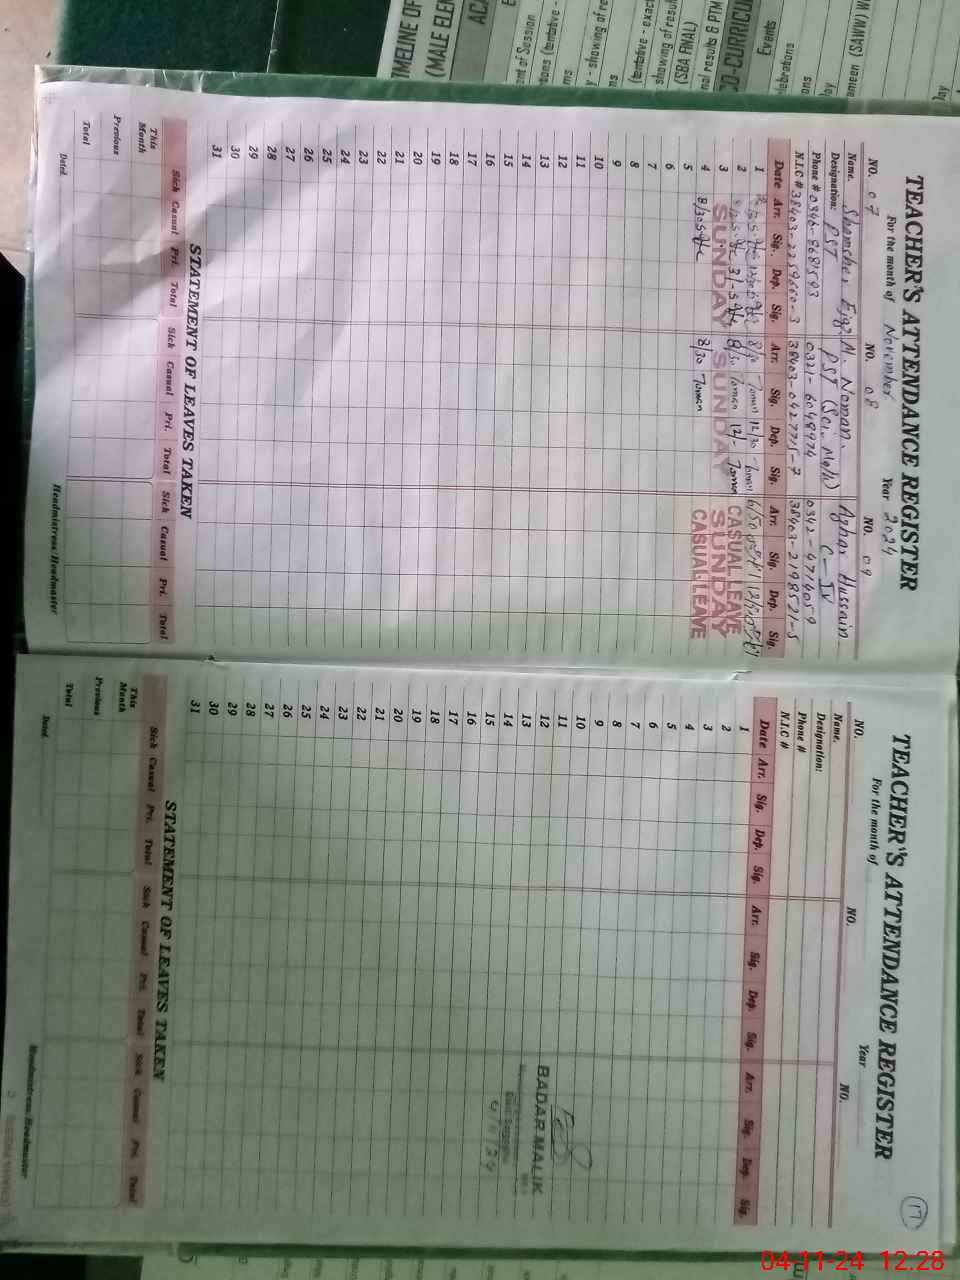 TIMELINE OF
(MALE ELEM
ACA
ent of Session
(tentative - exact
showing of resu
(SBA PMIAL)
CO-CURRICU
Events
TEACHER'S ATTENDANCE REGISTER
For the month of November Year 2024
NO. 07 NO. 08 NO. 09
Name. M. Noman. Azhar Hussain
Designation: PST PST (Sci. Math) C-IV
Phone # 0346-8681593 0321-6048974 0342-4714059
N.I.C # 38403-2259660-3 38403-0427715-7 38403-2198521-5
Date Arr. Sig. Dep. Sig. Arr. Sig. Dep. Sig. Arr. Sig. Dep. Sig.
1 8/30 12/30 6/50
2 8/30 12/- CASUAL LEAVE
3 SUNDAY SUNDAY SUNDAY
4 8/30 8/30 CASUAL LEAVE
5
6
7
8
9
10
11
12
13
14
15
16
17
18
19
20
21
22
23
24
25
26
27
28
29
30
31
STATEMENT OF LEAVES TAKEN
Sick Casual Pri. Total Sick Casual Pri. Total Sick Casual Pri. Total
This Month
Previous
Total
Dated. Headmistress/Headmaster
17
TEACHER'S ATTENDANCE REGISTER
For the month of Year
NO. NO. NO.
Name.
Designation:
Phone #
N.I.C #
Date Arr. Sig. Dep. Sig. Arr. Sig. Dep. Sig. Arr. Sig. Dep. Sig.
1
2
3
4
5
6
7
8
9
10
11
12
BADAR MALIK
13
14
15
16
17
18
19
20
21
22
23
24
25
26
27
28
29
30
31
STATEMENT OF LEAVES TAKEN
Sick Casual Pri. Total Sick Casual Pri. Total Sick Casual Pri. Total
This Month
Previous
Total
Dated. Headmistress/Headmaster
04-11-24 12:28